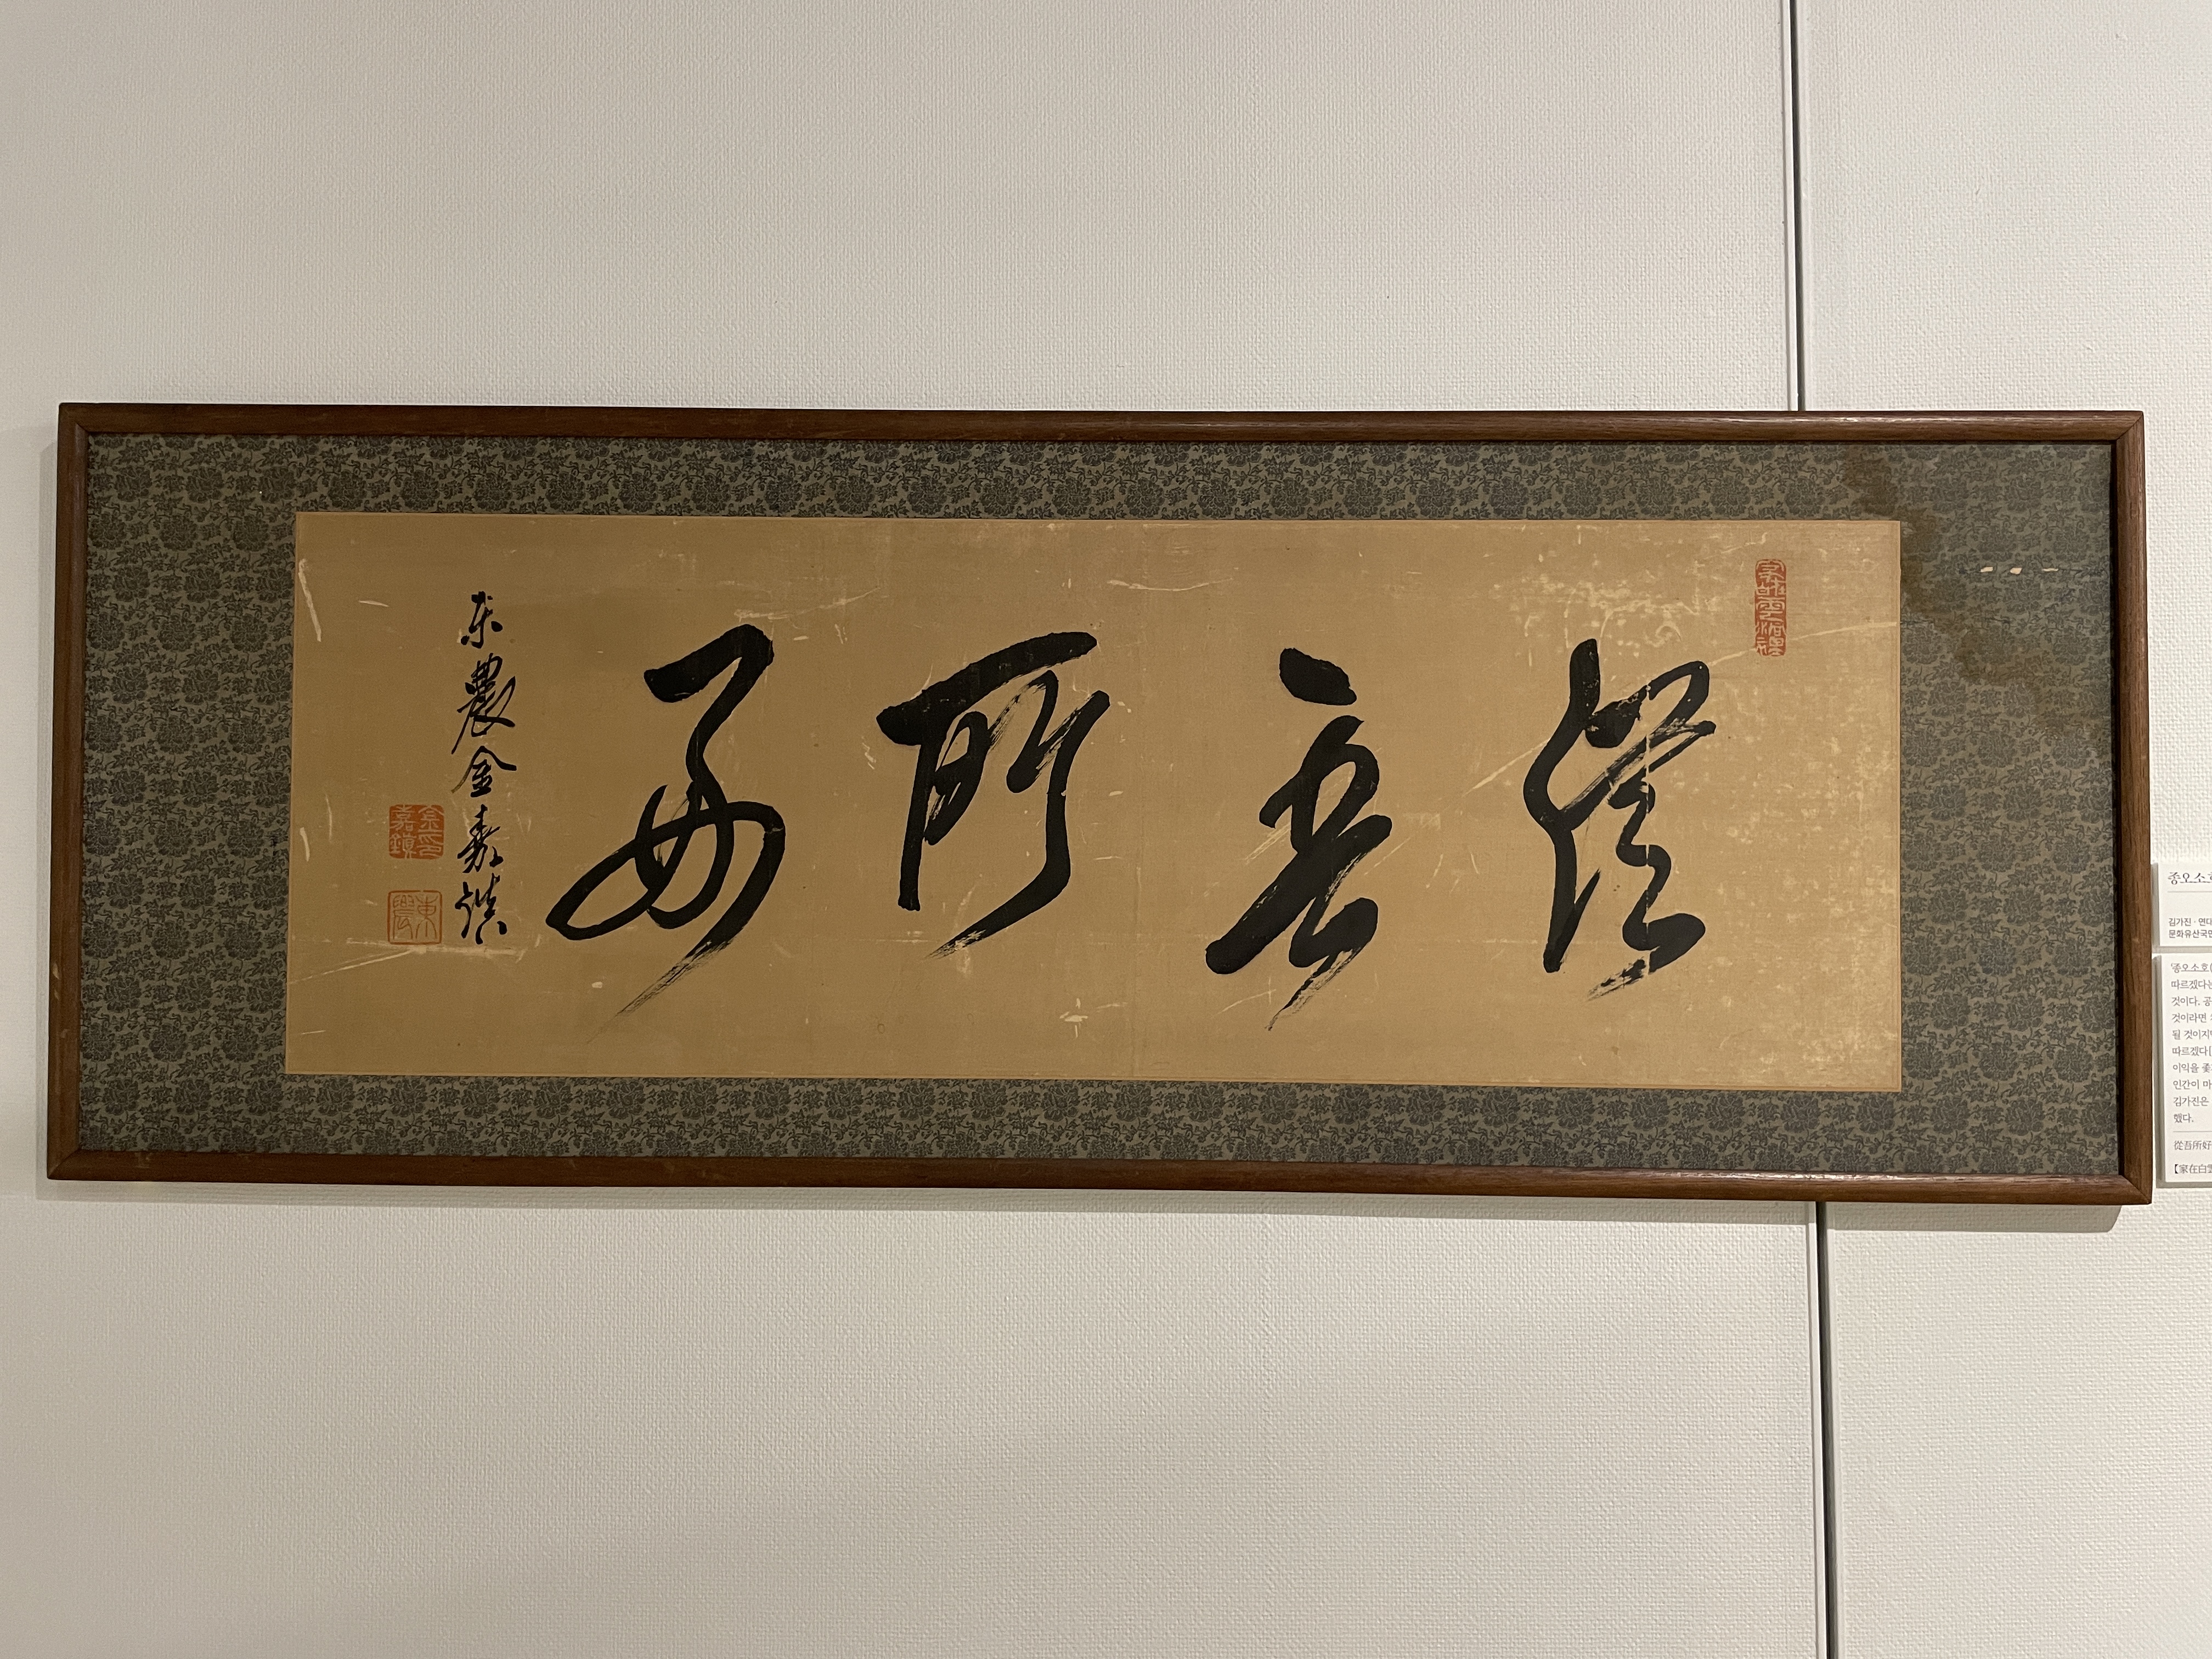 從吾所好
東農金嘉鎮
金印
嘉鎮
東農
종오소호
김가진 · 연대
문화유산국민
'종오소호(
따르겠다는
것이다. 공
것이라면
될 것이지만
따르겠다
이익을 좇
인간이 마
김가진은
했다.
從吾所好
【家在白雲